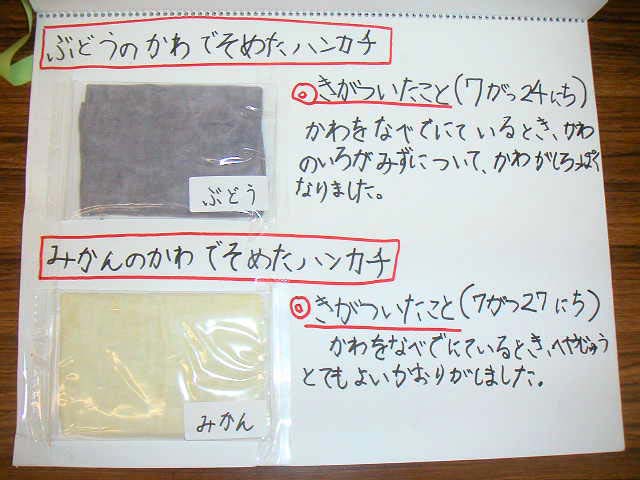 ぶどうのかわでそめたハンカチ
きがついたこと(7がつ24にち)
かわをなべでにているとき、かわ
のいろがみずについて、かわがしろっぽく
なりました。
ぶどう
みかんのかわでそめたハンカチ
きがついたこと(7がつ27にち)
かわをなべでにているとき、へやじゅう
とてもよいかおりがしました。
みかん